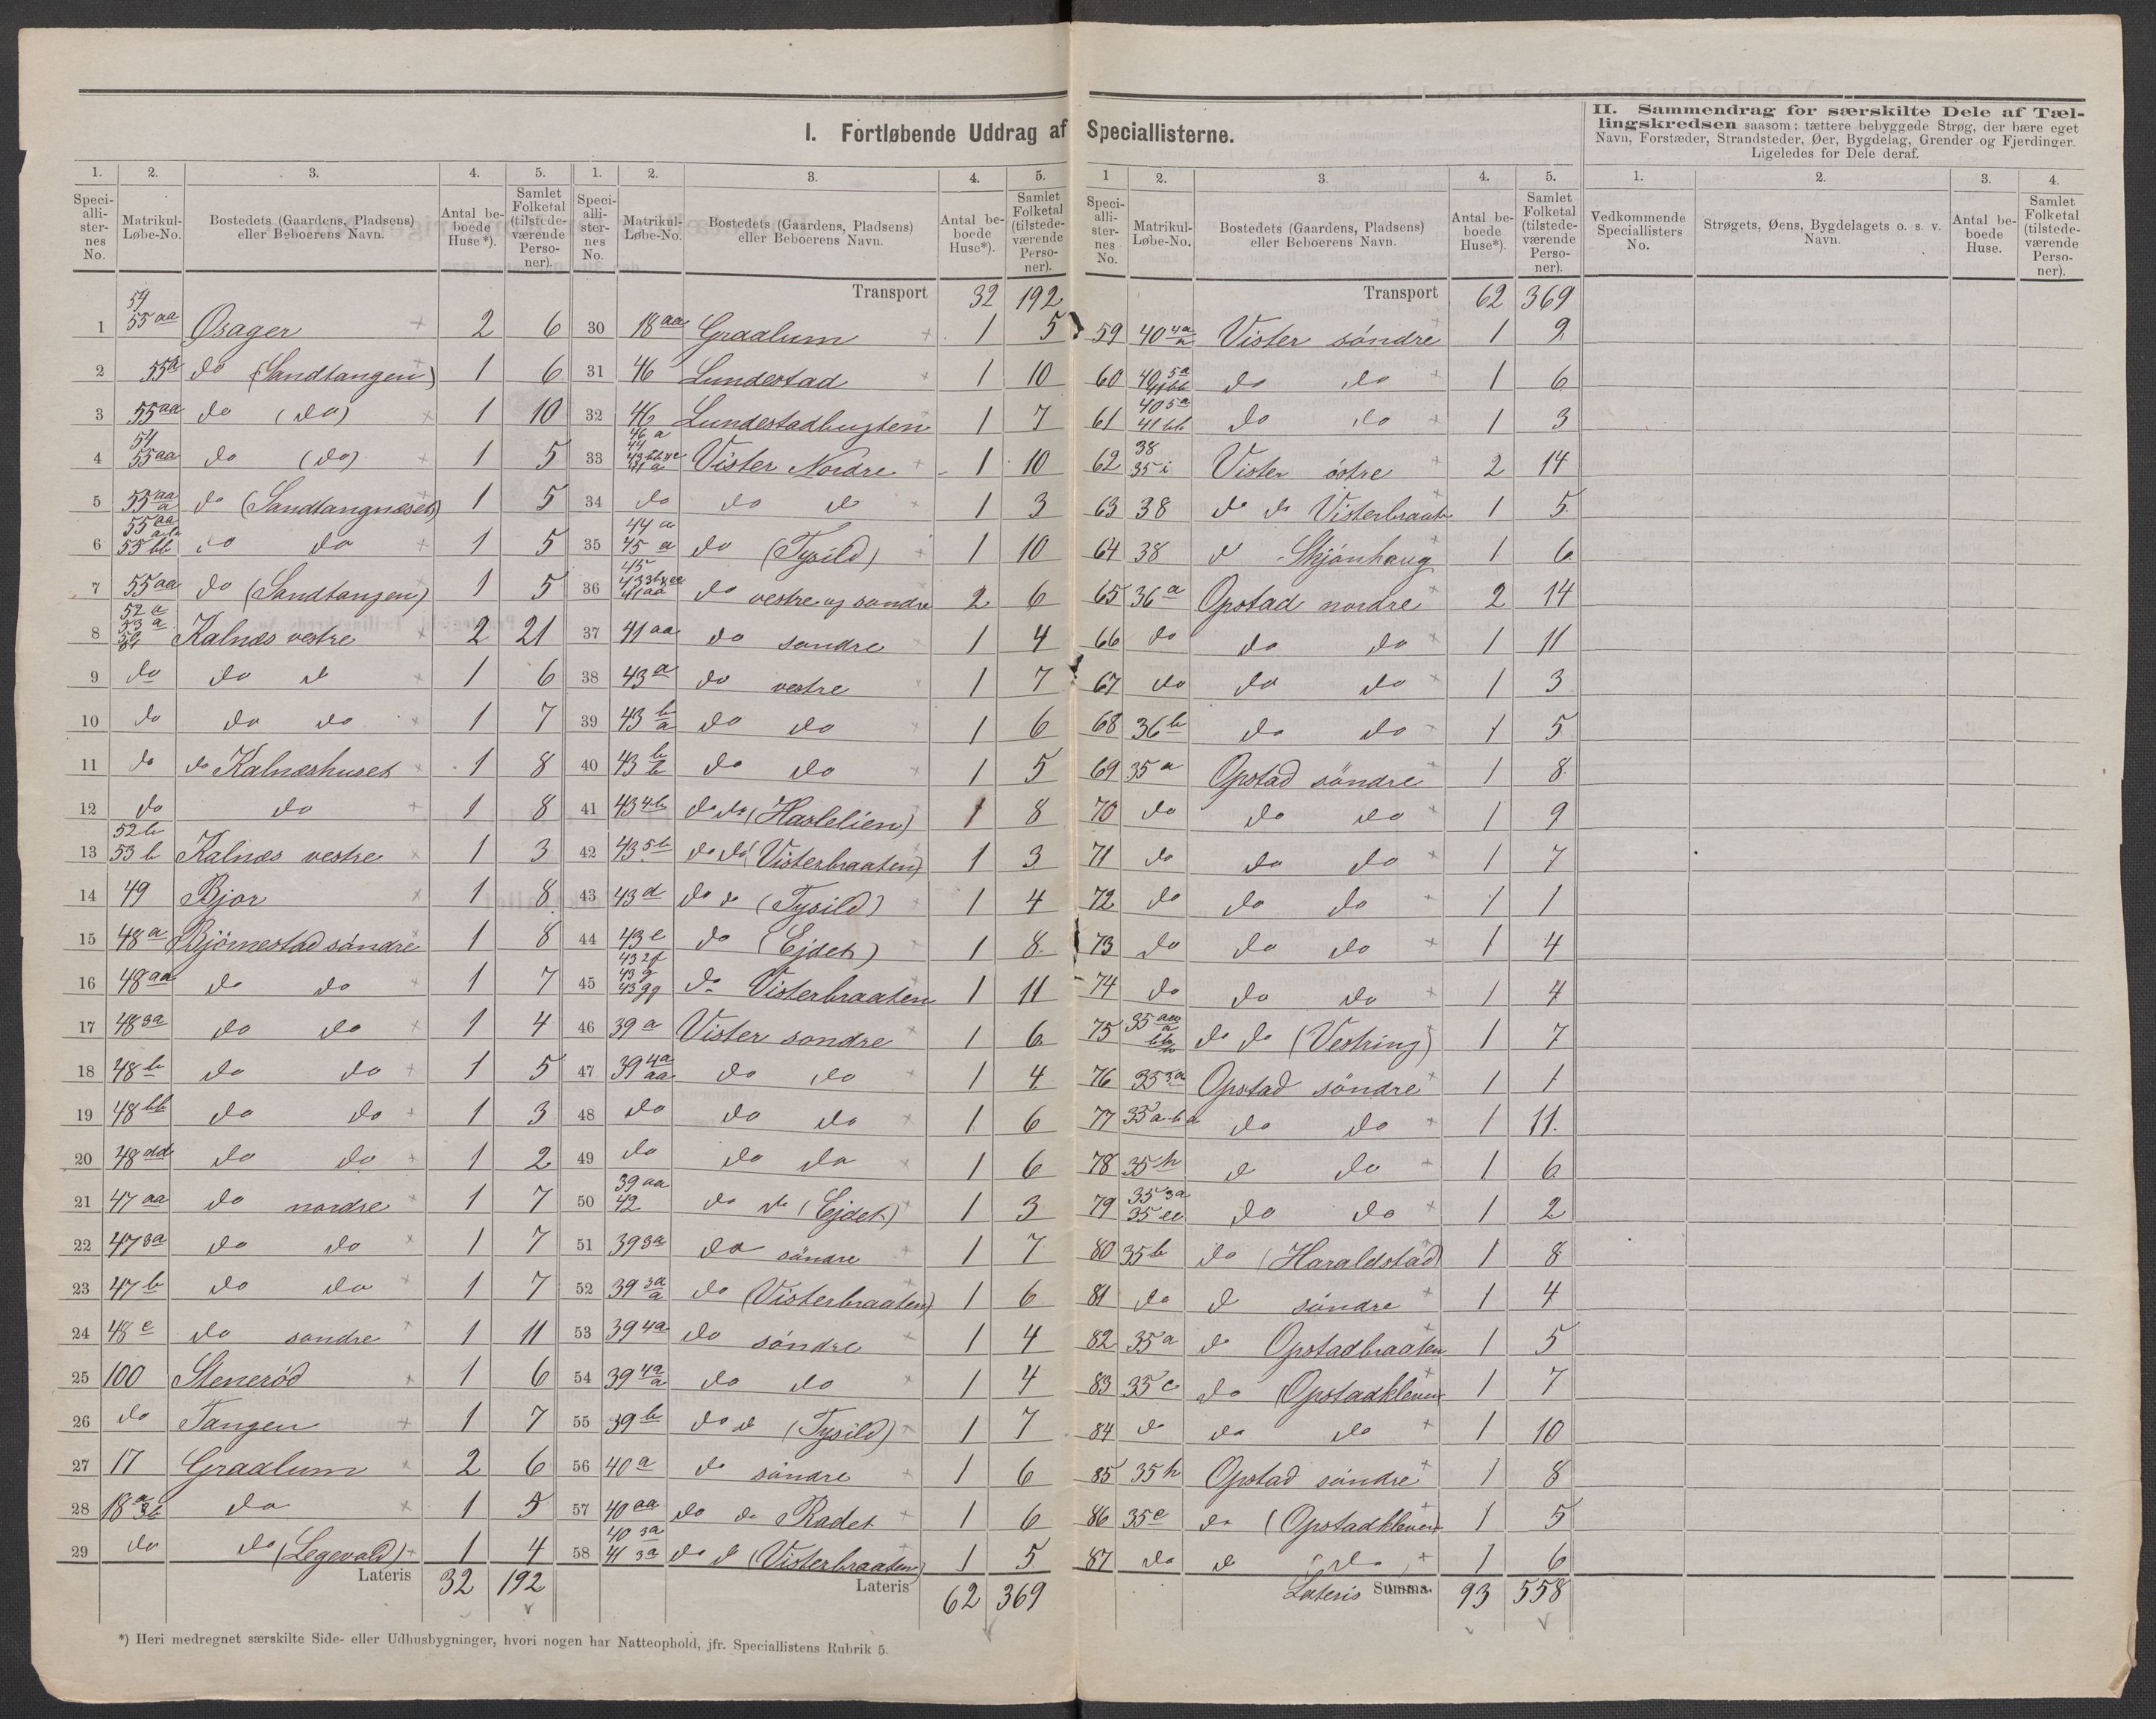 I. Fortløbende Uddrag af Speciallisterne.
II. Sammendrag for særskilte Dele af Tæl-
lingskredsen saasom: tættere bebyggede Strøg, der bære eget
Navn, Forstæder, Strandsteder, Øer, Bygdelag, Grender og Fjerdinger.
Ligeledes for Dele deraf.
1. 2. 3. 4. 5.
Speciallisternes No. Matrikul-Løbe-No. Bostedets (Gaardens, Pladsens) eller Beboerens Navn. Antal beboede Huse*). Samlet Folketal (tilstedeværende Personer).
1 54 55aa Øsager 2 6
2 55a do (Sandtangen) 1 6
3 55aa do (do) 1 10
4 54 55aa do (do) 1 5
5 55aa a do (Sandtangnæset) 1 5
6 55aa 55bb do do 1 5
7 55aa do (Sandtangen) 1 5
8 52a 53a 54 Kalnæs vestre 2 21
9 do do d 1 6
10 do do do 1 7
11 do do Kalnæshuset 1 8
12 do do 1 8
13 52b 53b Kalnæs vestre 1 3
14 49 Bjor 1 8
15 48a Bjørnestad søndre 1 8
16 48aa do do 1 7
17 48 3a do do 1 4
18 48b do do 1 5
19 48bb do do 1 3
20 48dd do do 1 2
21 47aa do nordre 1 7
22 47 3a do do 1 7
23 47b do do 1 7
24 48e do søndre 1 11
25 100 Stenerød 1 6
26 do Tangen 1 7
27 17 Graalum 2 6
28 18a 3b do 1 5
29 do do (Legevold) 1 4
Lateris 32 192
1. 2. 3. 4. 5.
Speciallisternes No. Matrikul-Løbe-No. Bostedets (Gaardens, Pladsens) eller Beboerens Navn. Antal beboede Huse*). Samlet Folketal (tilstedeværende Personer).
Transport 32 192
30 18aa Graalum 1 5
31 46 Lundestad 1 10
32 46 Lundestadbugten 1 7
33 46a 44 Vister Nordre 1 10
34 do do d 1 3
35 44a 45a do (Tysild) 1 10
36 45 41aa do vestre og søndre 2 6
37 41aa do søndre 1 4
38 43a do vestre 1 7
39 43 b a do do 1 6
40 43 b b do do 1 5
41 43 4b do do (Haslelien) 1 8
42 43 5b do do (Visterbraaten) 1 3
43 43d do do (Tysild) 1 4
44 43e do (Ejdet) 1 8
45 43 2f 43g 43gg do Visterbraaten 1 11
46 39a Vister søndre 1 6
47 39 4a aa do do 1 4
48 do do do 1 6
49 do do do 1 6
50 39aa 42 do do (Ejdet) 1 3
51 39 3a do søndre 1 7
52 39 3a a do (Visterbraaten) 1 6
53 39 4a do søndre 1 4
54 39 4a a do do 1 4
55 39b do d (Tysild) 1 7
56 40a do søndre 1 6
57 40aa do do Radet 1 6
58 40 3a 41 3a do d (Visterbraaten) 1 5
Lateris 62 369
1 2. 3. 4. 5.
Speciallisternes No. Matrikul-Løbe-No. Bostedets (Gaardens, Pladsens) eller Beboerens Navn. Antal beboede Huse*). Samlet Folketal (tilstedeværende Personer).
Transport 62 369
59 40 4a a Vister søndre 1 2
60 40 5a 41bb do do 1 6
61 40 5a 41bb do do 1 3
62 38 35i Vister østre 2 14
63 38 do do Visterbraat 1 5
64 38 d Skjønhaug 1 6
65 36a Opstad nordre 2 14
66 do do do 1 11
67 do do do 1 3
68 36b do do 1 5
69 35a Opstad søndre 1 8
70 do do do 1 9
71 do do do 1 7
72 do do do 1 1
73 do do do 1 4
74 do do do 1 4
75 35aa a bb do do (Vestring) 1 7
76 35 3a Opstad søndre 1 1
77 35a-bd do do 1 11
78 35h d do 1 6
79 35 3a 35ee do do 1 2
80 35b do (Haraldstad) 1 8
81 do d søndre 1 4
82 35a d Opstadbraaten 1 5
83 35e do (Opstadkleven 1 7
84 do do do 1 10
85 35h Opstad søndre 1 8
86 35e do (Opstadkleven) 1 5
87 do d do 1 6
Lateris Summa 93 558
1. 2. 3. 4.
Vedkommende Speciallisters No. Strøgets, Øens, Bygdelagets o. s. v. Navn. Antal beboede Huse. Samlet Folketal (tilstedeværende Personer).
*) Heri medregnet særskilte Side- eller Udhusbygninger, hvori nogen har Natteophold, jfr. Speciallistens Rubrik 5.